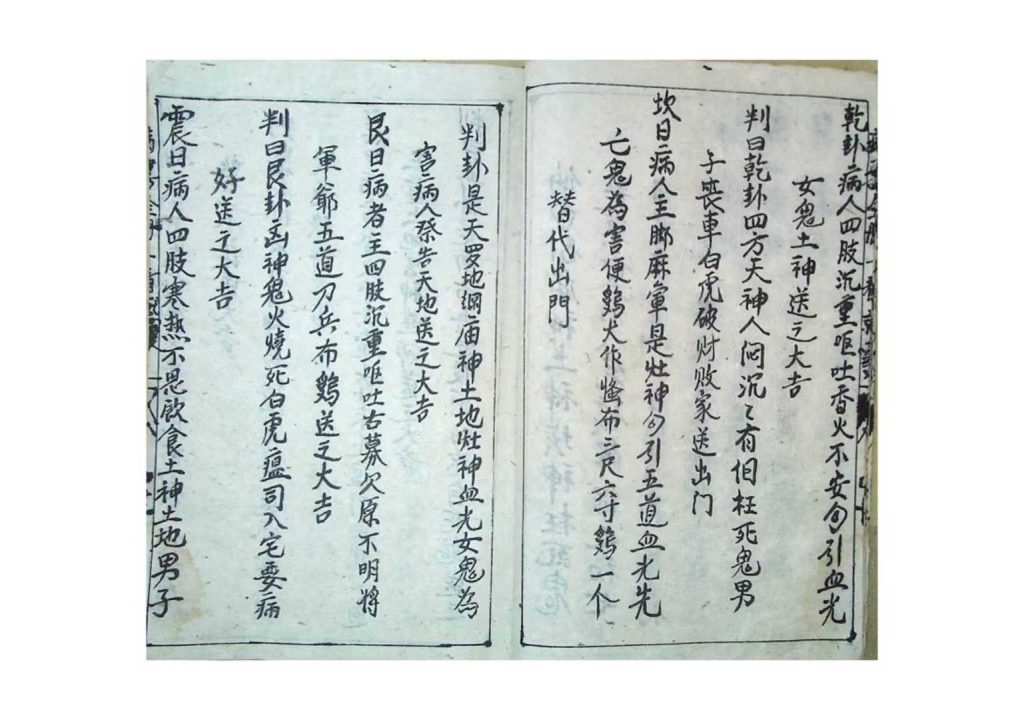 乾卦病人四肢沉重呕吐香火不安勾引血光
女鬼土神送之大吉
判曰乾卦四方天神人闷沉〻有伹枉死鬼男
子丧車白虎破财败家送出门
坎日病人主脚麻軍是灶神勾引五道血光先
亡鬼為害便鷄犬作恠布三尺六寸鷄一个
替代出門
判卦是天罗地網庙神土地灶神血光女鬼為
害病人祭告天地送之大吉
艮日病者主四肢沉重呕吐古墓欠原不明将
軍爺五道刀兵布鷄送之大吉
判曰艮卦凶神鬼火燒死白虎瘟司入宅要病
好送之大吉
震日病人四肢寒热不思飲食土神土地男子